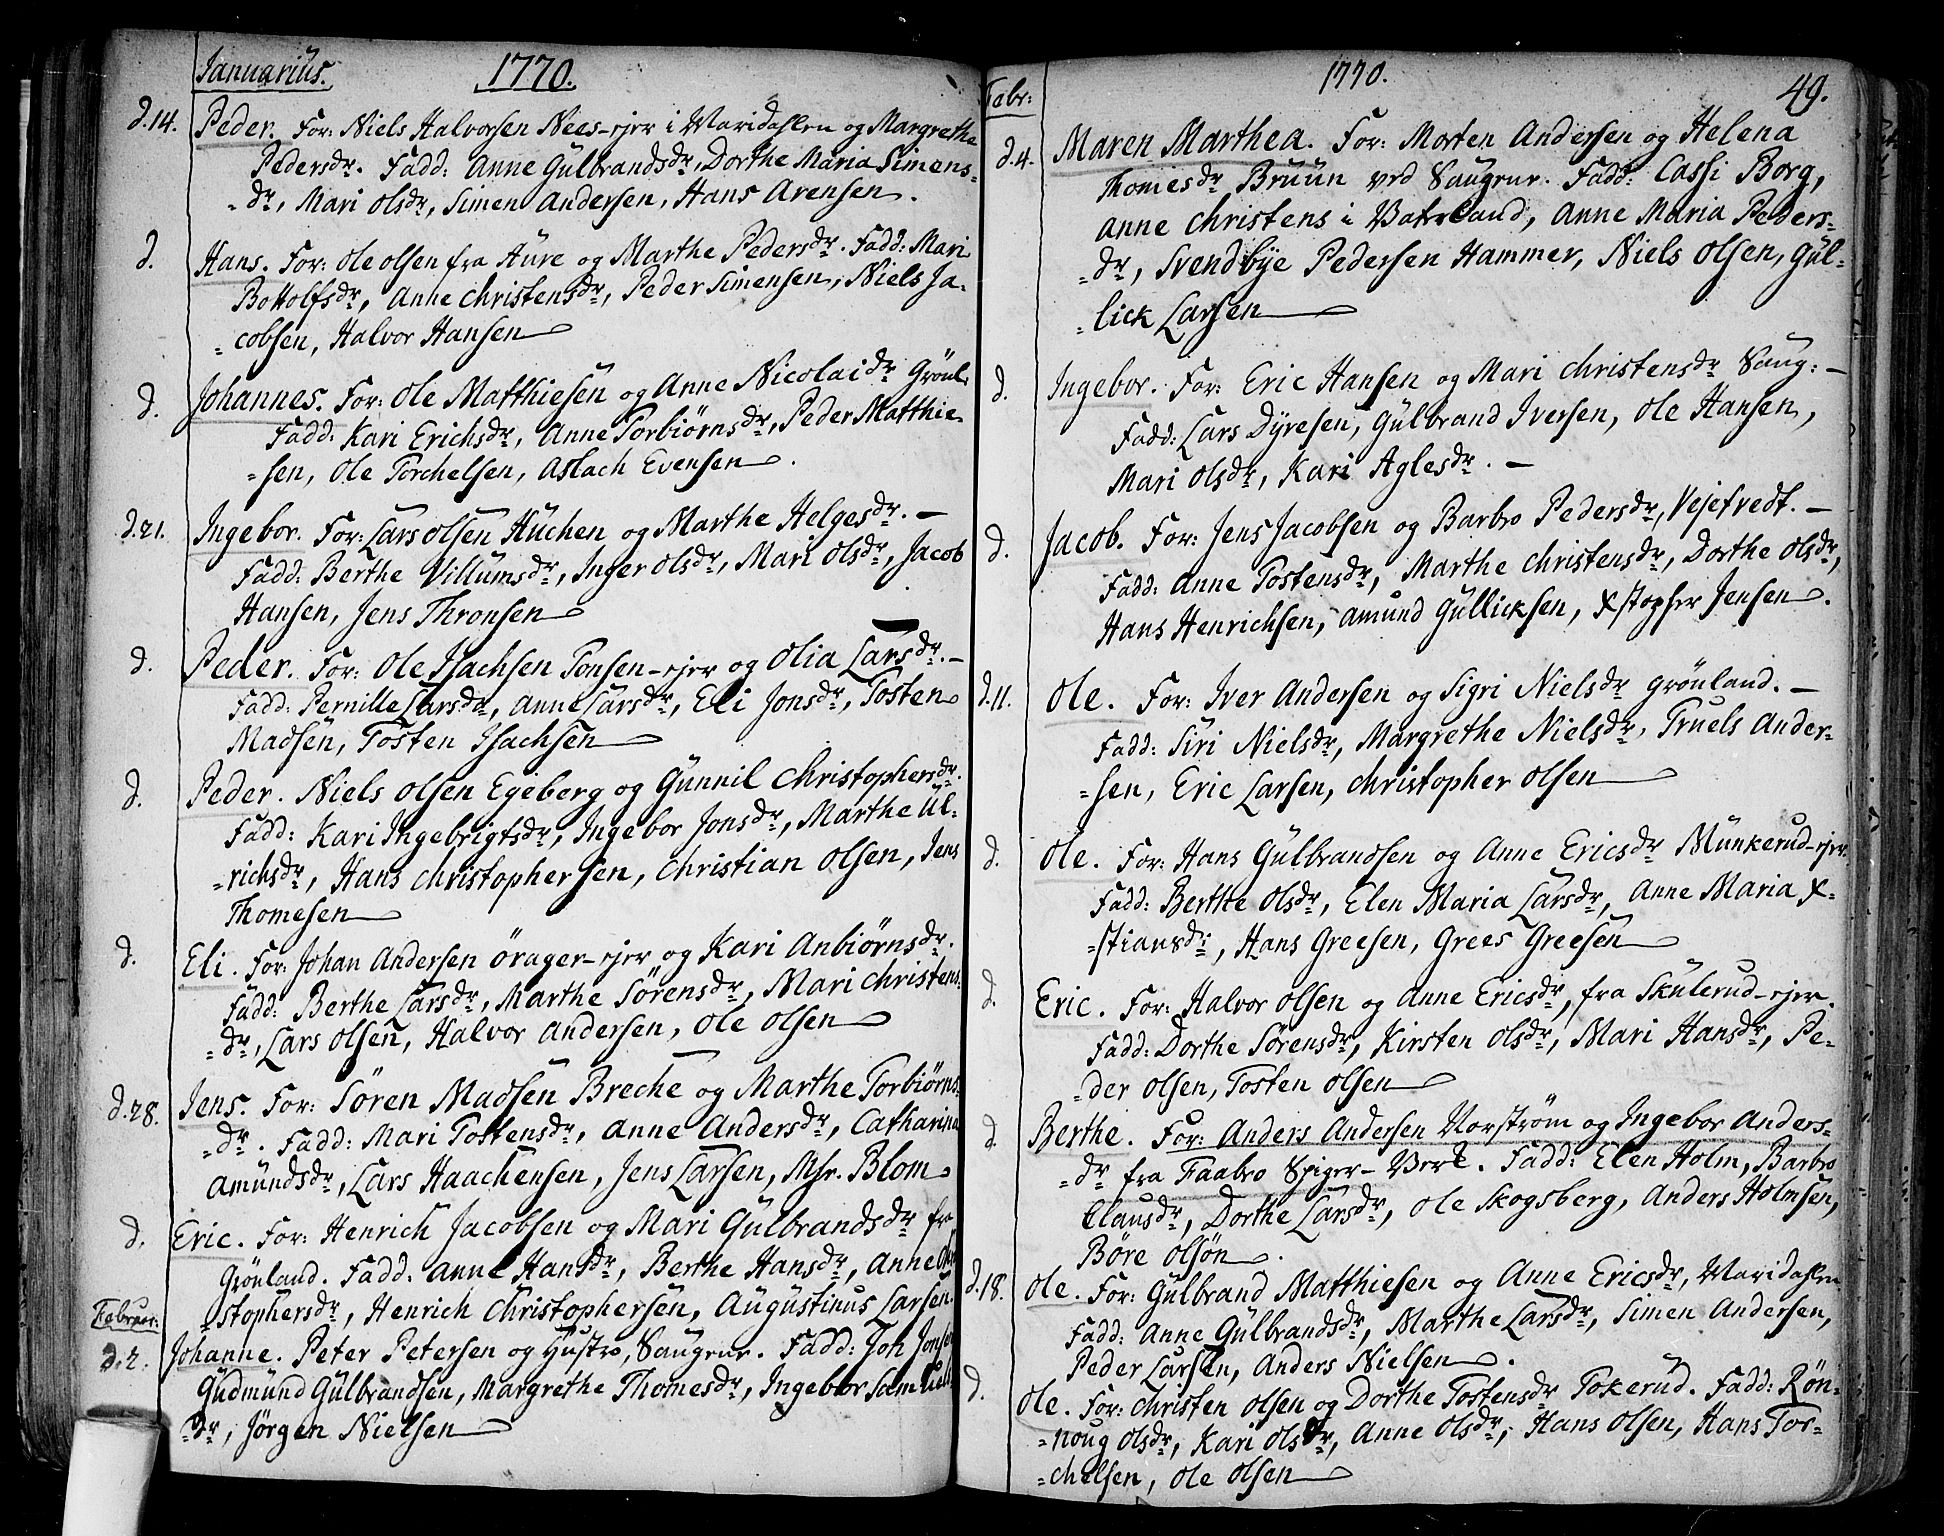 Januarius. 1770.
d.14. Peder. For: Niels Halvorsen Nees-ejer i Maridahlen og Margrethe
Pedersdr. Fadd: Anne Gülbrandsdr, Dorthe Maria Simens-
-dr, Mari Olsdr, Simen Andersen, Hans Arensen.
d. Hans. For: Ole Olsen fra Aüre og Marthe Pedersdr. Fadd: Mari
Bottolfsdr, Anne Christensdr, Peder Simensen, Niels Ja-
-cobsen, Halvor Hansen
d. Johannes. For: Ole Matthiesen og Anne Nicolaidr Grönl.
Fadd: Kari Erichsdr, Anne Torbiörnsdr, Peder Matthie-
-sen, Ole Torchelsen, Aslach Evensen.
d.21. Ingebor. For: Lars Olsen Hüchen og Marthe Helgesdr. -
Fadd: Berthe Villümsdr, Inger Olsdr, Mari Olsdr, Jacob
Hansen, Jens Thronsen
d. Peder. For: Ole Isachsen Tonsen-ejer og Olia Larsdr. -
Fadd: Pernille Larsdr, Anne Larsdr, Eli Jonsdr, Tosten
Madsen, Tosten Isachsen
d. Peder. Niels Olsen Egeberg og Günnil Christophersdr.
Fadd: Kari Ingebrigtsdr, Ingebor Jonsdr, Marthe Ül-
-richsdr, Hans Christophersen, Christian Olsen, Jens
Thomesen
d. Eli. For: Johan Andersen Örager-ejer og Kari Anbiörnsdr.
Fadd: Berthe Larsdr, Marthe Sörensdr, Mari Christens-
-dr, Lars Olsen, Halvor Andersen, Ole Olsen
d.28. Jens. For: Sören Madsen Breche og Marthe Torbiörns-
-dr. Fadd: Mari Tostensdr, Anne Andersdr, Catharina
Amündsdr, Lars Haachensen, Jens Larsen, Msr. Blom
d. Eric. For: Henrich Jacobsen og Mari Gülbrandsdr fra
Grönland. Fadd: Anne Hansdr, Berthe Hansdr, Anne Chri-
-stophersdr, Henrich Christophersen, Augustinus Larsen.
Februar:
d.2. Johanne. Peter Petersen og Hustro, Saugene. Fadd: Jon Jonsen
Güdmünd Gülbrandsen, Margrethe Thomesdr, Ingebor Samüels-
-dr, Jörgen Nielsen
1770. 49.
Febr:
d.4. Maren Marthea. For: Morten Andersen og Helena
Thomesdr Brüün ved Saugene. Fadd: Cassi Borg,
Anne Christens i Vaterland, Anne Maria Peders-
-dr, Svendbye Pedersen Hammer, Niels Olsen, Gül-
-lick Larsen
d. Ingebor. For: Eric Hansen og Mari Christensdr Saug: -
Fadd: Lars Dyresen, Gülbrand Iversen, Ole Hansen,
Mari Olsdr, Kari Aglesdr. -
d. Jacob. For: Jens Jacobsen og Barbro Pedersdr, Vejetvedt. -
Fadd: Anne Tostensdr, Marthe Christensdr, Dorthe Olsdr,
Hans Henrichsen, Amund Güllicksen, Xstopher Jensen.
d.11. Ole. For: Iver Andersen og Sigri Nielsdr Grönland. -
Fadd: Siri Nielsdr, Margrethe Nielsdr, Truels Ander-
-sen, Eric Larsen, Christopher Olsen
d. Ole. For: Hans Gülbrandsen og Anne Ericsdr Münkerud-ejer.
Fadd: Berthe Olsdr, Elen Maria Larsdr, Anne Maria X-
-stiansdr, Hans Greesen, Grees Greesen
d. Eric. For: Halvor Olsen og Anne Ericsdr, fra Skülerud-ejer.
Fadd: Dorthe Sörensdr, Kirsten Olsdr, Mari Hansdr, Pe-
-der Olsen, Tosten Olsen
d. Berthe. For: Anders Andersen Norström og Ingebor Anders-
-dr fra Faabro Spiger-Verk. Fadd: Elen Holm, Barbro
Clausdr, Dorthe Larsdr, Ole Skogsberg, Anders Holmsen,
Böre Olsön.
d.18. Ole. For: Gülbrand Matthiesen og Anne Ericsdr, Maridahlen
Fadd: Anne Gülbrandsdr, Marthe Larsdr, Simen Andersen,
Peder Larsen, Anders Nielsen.
d. Ole. For: Christen Olsen og Dorthe Tostensdr Tokerud. Fadd: Rön-
-noug Olsdr, Kari Olsdr, Anne Olsdr, Hans Olsen, Hans Tor-
-chelsen, Ole Olsen